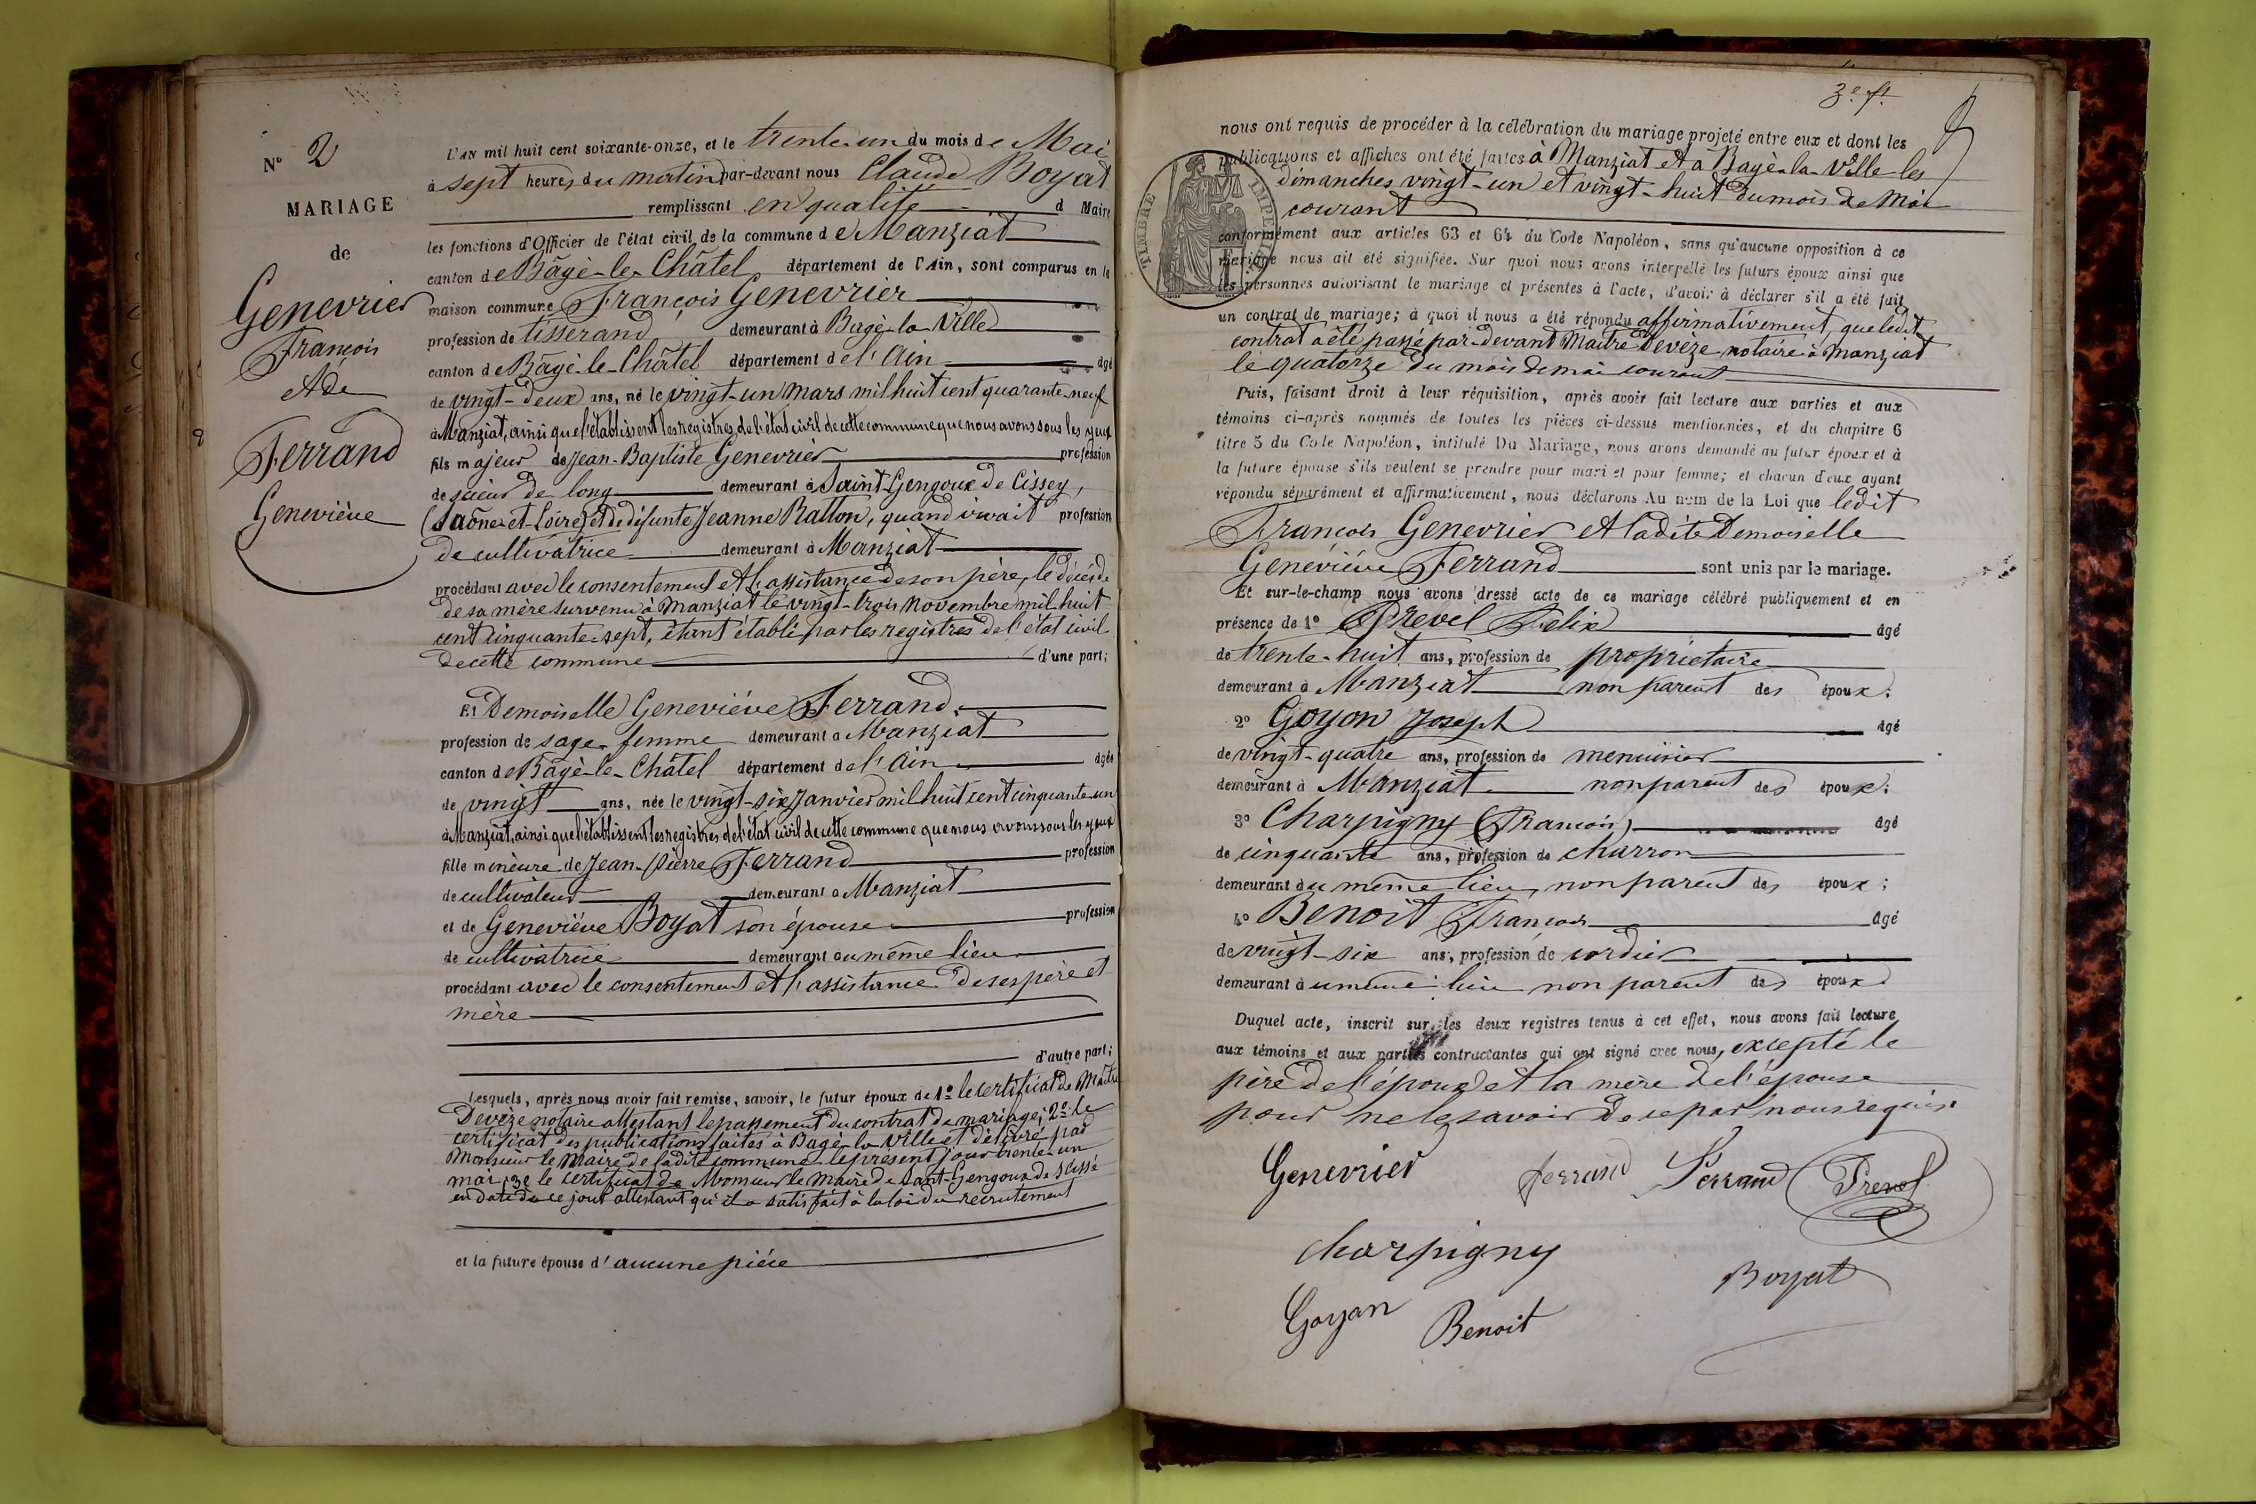 N° 2
MARIAGE
de
Genevrier
François
et de
Ferrand
Geneviève
L'AN mil huit cent soixante-onze, et le trente-un du mois de Mai
à sept heures du matin par-devant nous Claude Boyat
remplissant en qualité d Maire
les fonctions d'Officier de l'état civil de la commune de Manziat
canton de Bâgé-le-Châtel, département de l'Ain, sont comparus en la
maison commune François Genevrier
profession de tisserand demeurant à Bagé-la-Ville
canton de Bâgé-le-Châtel département de l'Ain âgé
de vingt-deux ans, né le vingt-un mars mil huit cent quarante-neuf
à Manziat, ainsi que l'établissent les registres de l'état civil de cette commune que nous avons sous les yeux
fils majeur de Jean-Baptiste Genevrier profession
de scieur de long demeurant à Saint-Gengoux de Cissey,
(Saône-et-Loire) et de défunte Jeanne Ratton, quand vivait profession
de cultivatrice demeurant à Manziat
procédant avec le consentement et l'assistance de son père, le décès de
de sa mère survenu à Manziat le vingt-trois novembre mil huit
cent cinquante-sept, étant établi par les registres de l'état civil
de cette commune d'une part;
Et Demoiselle Geneviève Ferrand,
profession de sage-femme demeurant à Manziat
canton de Bâgé-le-Châtel département de l'Ain âgée
de vingt ans, née le vingt-six Janvier mil huit cent cinquante-un
à Manziat, ainsi que l'établissent les registres de l'état civil de cette commune que nous avons sous les yeux
fille mineure de Jean-Pierre Ferrand profession
de cultivateur demeurant à Manziat
et de Geneviève Boyat son épouse profession
de cultivatrice demeurant au même lieu
procédant avec le consentement et l'assistance de ses père et
mère
d'autre part;
Lesquels, après nous avoir fait remise, savoir, le futur époux de 1° le certificat de Maître
Devèze notaire attestant le passement du contrat de mariage; 2° le
certificat des publications faites à Bagé-la-Ville et délivré par
Monsieur le Maire de ladite commune le présent jour trente-un
mai; 3° le certificat de Monsieur le Maire de Saint-Gengoux de Scissé
en date de ce jour attestant qu'il a satisfait à la loi du recrutement
et la future épouse d'aucune pièce
3e ft.
nous ont requis de procéder à la célébration du mariage projeté entre eux et dont les
publications et affiches ont été faites à Manziat et à Bagé-la-Ville les
dimanches vingt-un et vingt-huit du mois de Mai
courant
TIMBRE IMPERIAL
conformément aux articles 63 et 64 du Code Napoléon, sans qu'aucune opposition à ce
mariage nous ait été signifiée. Sur quoi nous avons interpellé les futurs époux ainsi que
les personnes autorisant le mariage et présentes à l'acte, d'avoir à déclarer s'il a été fait
un contrat de mariage; à quoi il nous a été répondu affirmativement, que ledit
contrat a été passé par-devant Maître Devèze notaire à Manziat
le quatorze du mois de mai courant
Puis, faisant droit à leur réquisition, après avoir fait lecture aux parties et aux
témoins ci-après nommés de toutes les pièces ci-dessus mentionnées, et du chapitre 6
titre 5 du Code Napoléon, intitulé Du Mariage, nous avons demandé au futur époux et à
la future épouse s'ils veulent se prendre pour mari et pour femme; et chacun d'eux ayant
répondu séparément et affirmativement, nous déclarons Au nom de la Loi que ledit
François Genevrier et ladite Demoiselle
Geneviève Ferrand sont unis par le mariage.
Et sur-le-champ nous avons dressé acte de ce mariage célébré publiquement et en
présence de 1° Prevel Felix âgé
de trente-huit ans, profession de propriétaire
demeurant à Manziat non parent des époux;
2° Goyon Joseph âgé
de vingt-quatre ans, profession de menuisier
demeurant à Manziat non parent des époux;
3° Charpigny François, âgé
de cinquante ans, profession de charron
demeurant au même lieu non parent des époux;
4° Benoit François âgé
de vingt-six ans, profession de cordier
demeurant au même lieu non parent des époux
Duquel acte, inscrit sur les deux registres tenus à cet effet, nous avons fait lecture
aux témoins et aux parties contractantes qui ont signé avec nous, excepté le
père de l'époux et la mère de l'épouse
pour ne le savoir de ce par nous requis.
Genevrier ferrand Ferrand Prevel
Charpigny
Boyat
Goyon Benoit